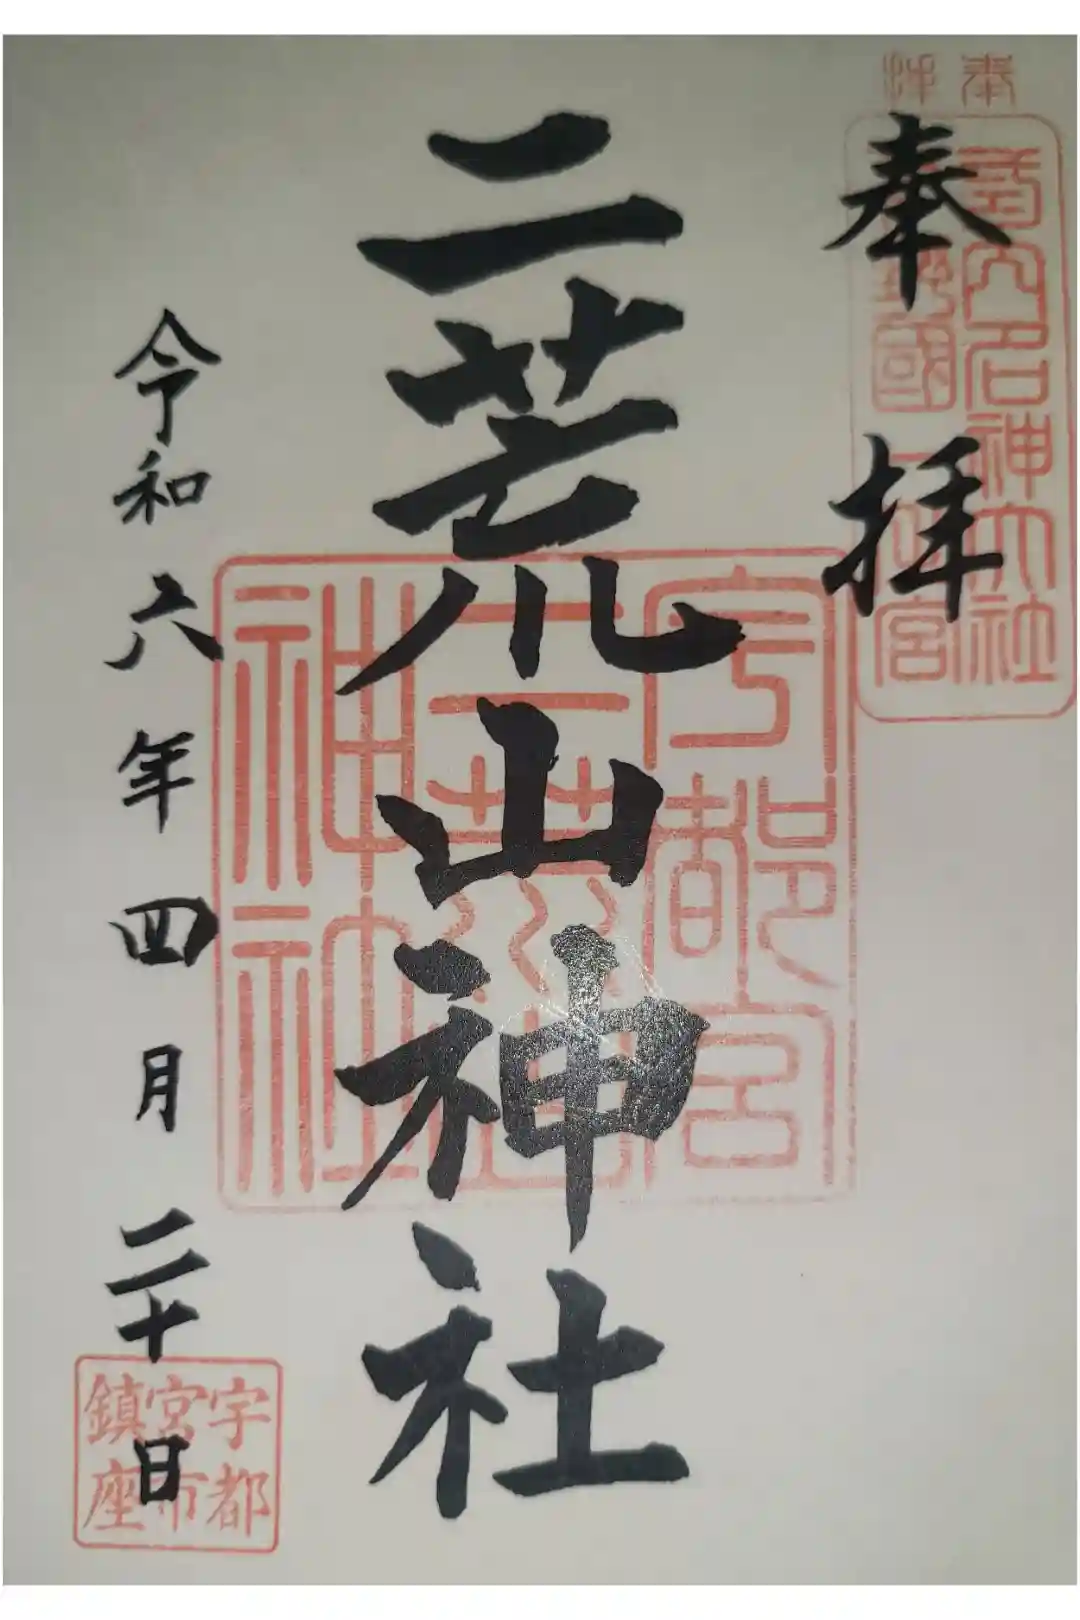 奉拝
二荒山神社
令和六年四月二十日
名神大社
國一
宮
宇都宮
二荒山
神社
宇都
宮市
鎮座